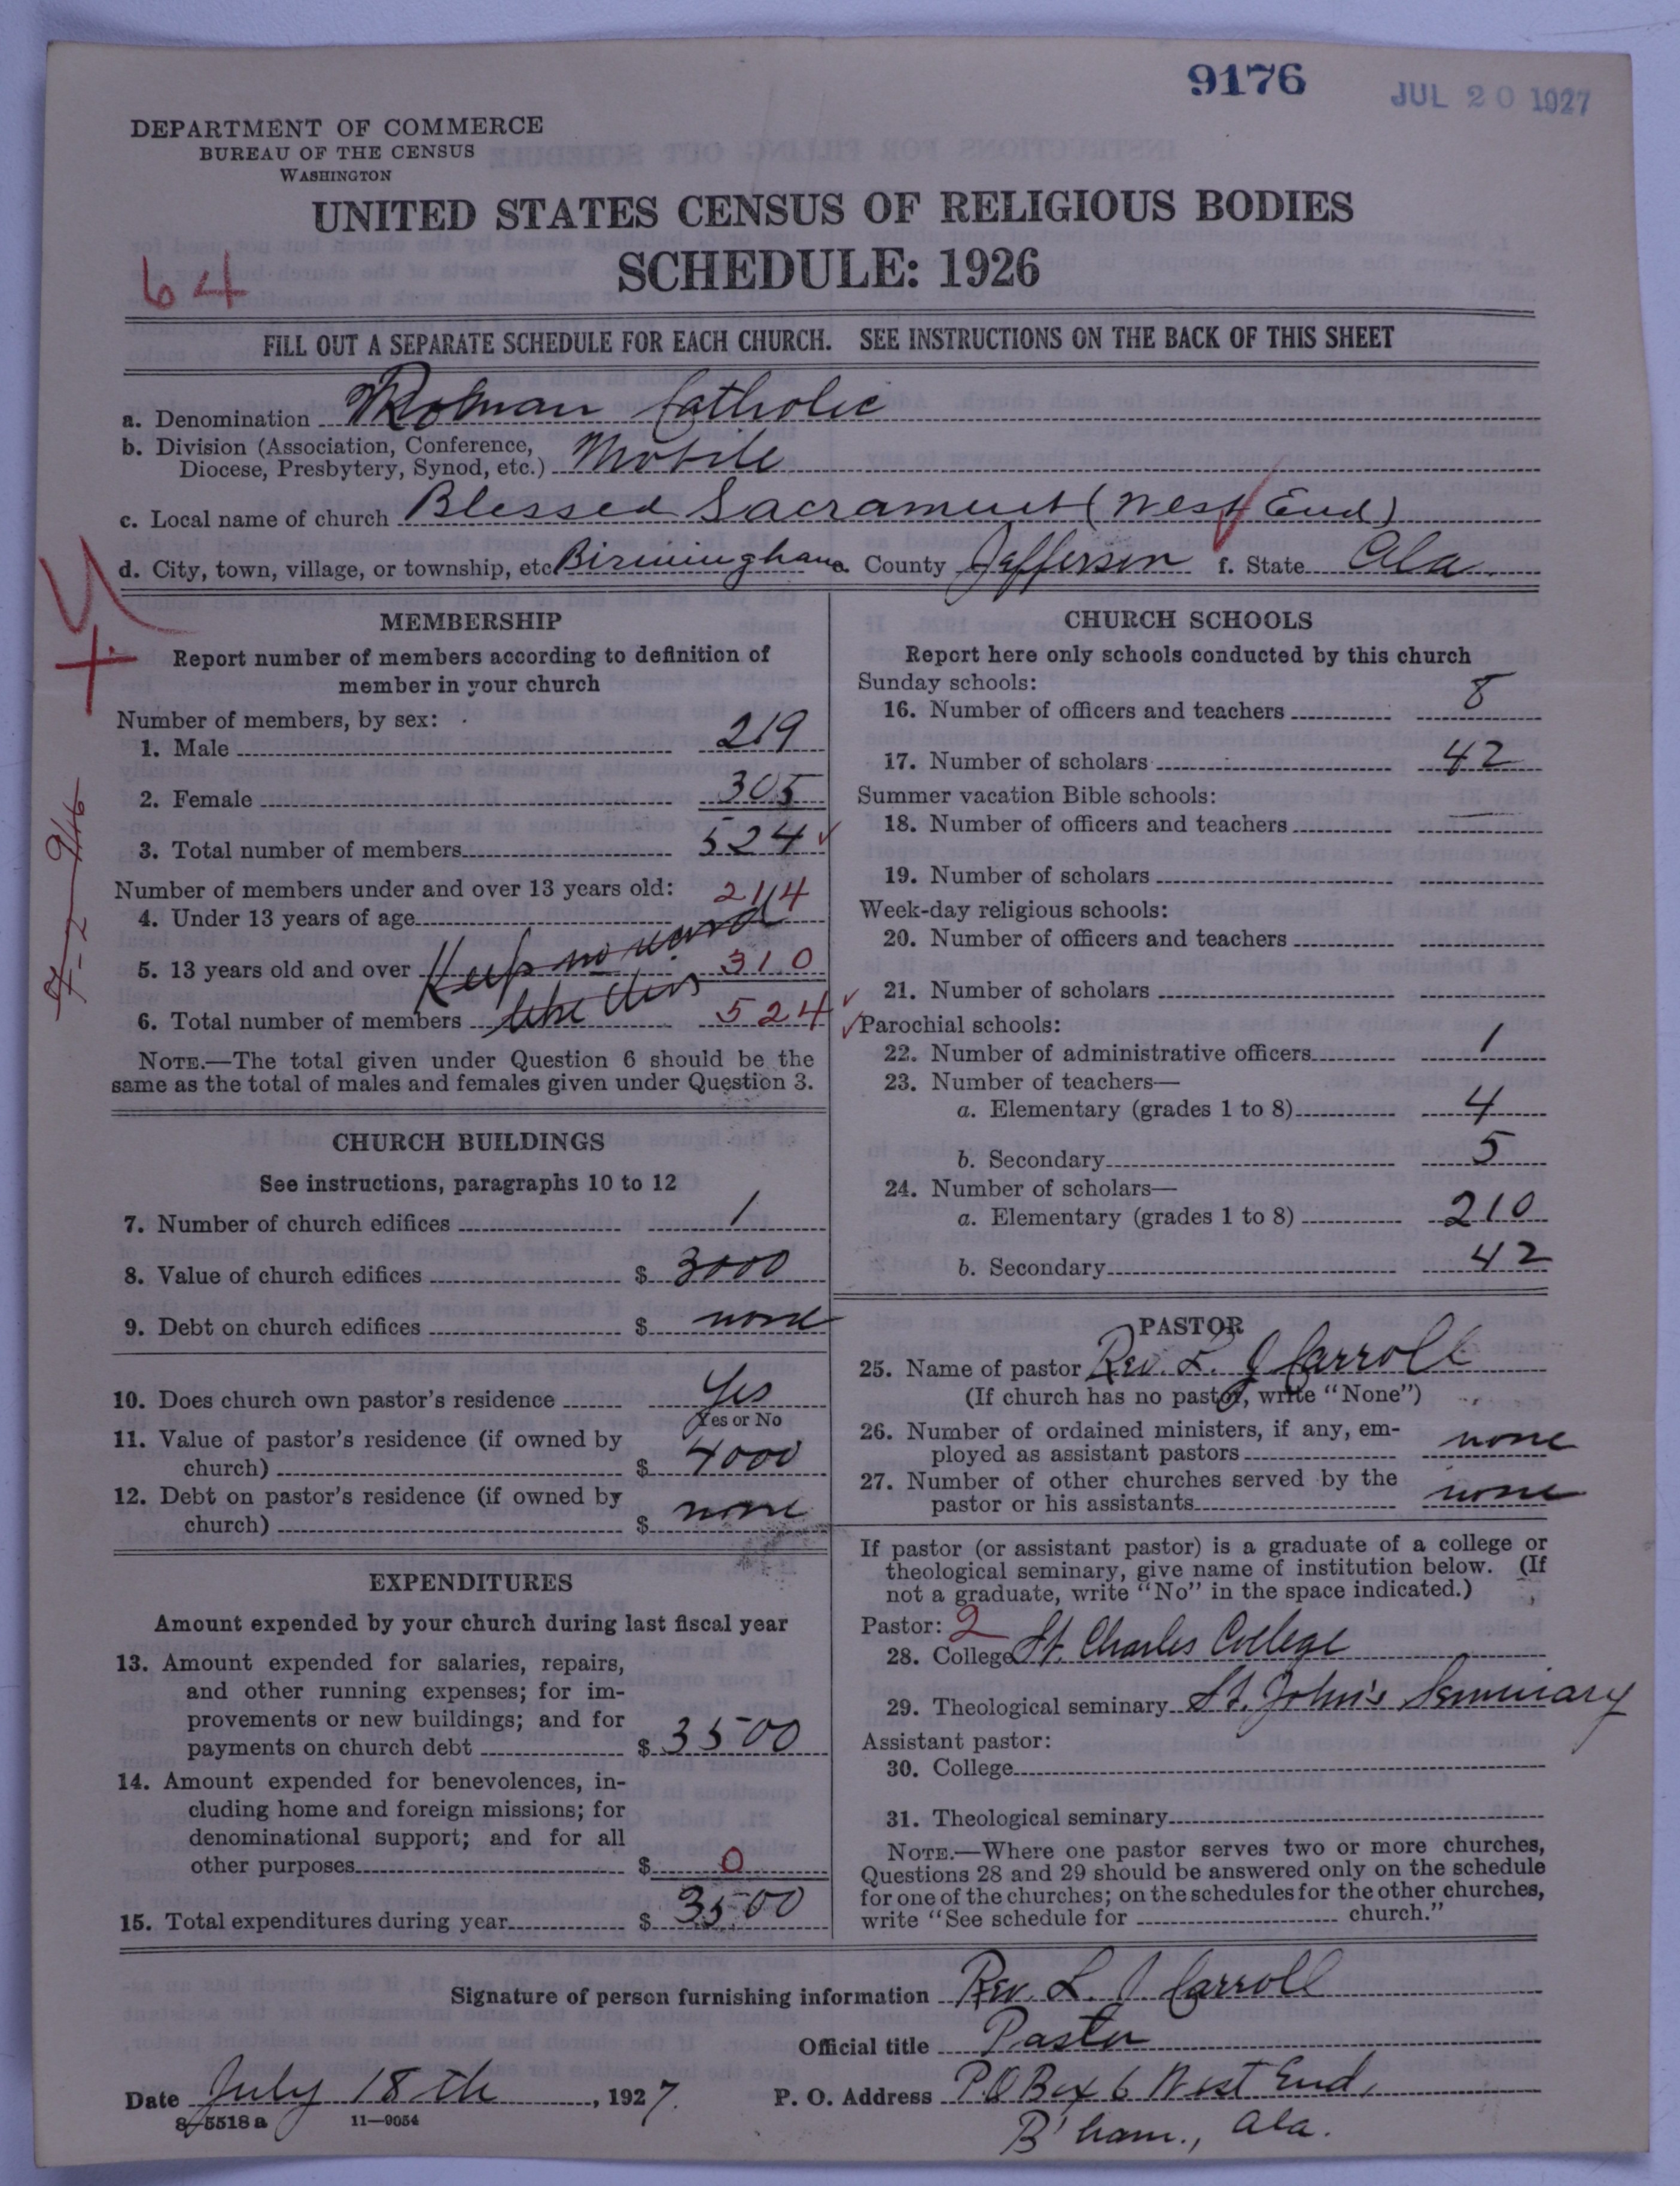 9176
JUL 20 1927
DEPARTMENT OF COMMERCE
BUREAU OF THE CENSUS
WASHINGTON
UNITED STATES CENSUS OF RELIGIOUS BODIES
SCHEDULE: 1926
64
FILL OUT A SEPARATE SCHEDULE FOR EACH CHURCH. SEE INSTRUCTIONS ON THE BACK OF THIS SHEET
a. Denomination Roman Catholic
b. Division (Association, Conference,
Diocese, Presbytery, Synod, etc.) Mobile
c. Local name of church Blessed Sacrament (West End)
d. City, town, village, or township, etc. Birmingham e. County Jefferson f. State Ala.
MEMBERSHIP
Report number of members according to definition of
member in your church
Number of members, by sex:
1. Male 219
2. Female 305
3. Total number of members 524
Number of members under and over 13 years old:
4. Under 13 years of age 214
5. 13 years old and over Keep no record 310
6. Total number of members like this 524
NOTE.—The total given under Question 6 should be the
same as the total of males and females given under Question 3.
CHURCH BUILDINGS
See instructions, paragraphs 10 to 12
7. Number of church edifices 1
8. Value of church edifices $ 3000
9. Debt on church edifices $ none
10. Does church own pastor's residence Yes
Yes or No
11. Value of pastor's residence (if owned by
church) $ 4000
12. Debt on pastor's residence (if owned by
church) $ none
EXPENDITURES
Amount expended by your church during last fiscal year
13. Amount expended for salaries, repairs,
and other running expenses; for im-
provements or new buildings; and for
payments on church debt $ 3500
14. Amount expended for benevolences, in-
cluding home and foreign missions; for
denominational support; and for all
other purposes $ 0
15. Total expenditures during year $ 3500
CHURCH SCHOOLS
Report here only schools conducted by this church
Sunday schools:
16. Number of officers and teachers 8
17. Number of scholars 42
Summer vacation Bible schools:
18. Number of officers and teachers —
19. Number of scholars
Week-day religious schools:
20. Number of officers and teachers
21. Number of scholars
Parochial schools:
22. Number of administrative officers 1
23. Number of teachers—
a. Elementary (grades 1 to 8) 4
b. Secondary 5
24. Number of scholars—
a. Elementary (grades 1 to 8) 210
b. Secondary 42
PASTOR
25. Name of pastor Rev. L. J Carroll
(If church has no pastor, write "None")
26. Number of ordained ministers, if any, em-
ployed as assistant pastors none
27. Number of other churches served by the
pastor or his assistants none
If pastor (or assistant pastor) is a graduate of a college or
theological seminary, give name of institution below. (If
not a graduate, write "No" in the space indicated.)
Pastor: 2
28. College St. Charles College
29. Theological seminary St. John's Seminary
Assistant pastor:
30. College
31. Theological seminary
NOTE.—Where one pastor serves two or more churches,
Questions 28 and 29 should be answered only on the schedule
for one of the churches; on the schedules for the other churches,
write "See schedule for church."
Signature of person furnishing information Rev. L. J Carroll
Official title Pastor
Date July 18th, 1927. P. O. Address P.O Box 6 West End,
8-5518a 11-9054
B'ham., Ala.